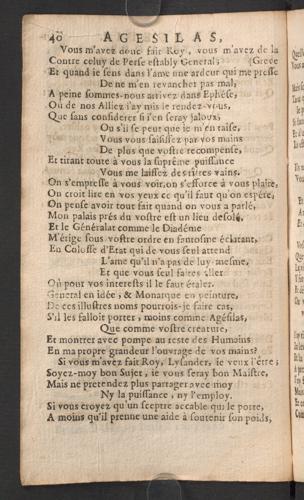 40 AGESILAS,
Vous m'avez donc fait Roy, vous m'avez de la
Contre celuy de Perse estably General; (Grece
Et quand je sens dans l'ame une ardeur qui me presse
De ne m'en revancher pas mal,
A peine sommes-nous arrivez dans Ephése,
Où de nos Alliez j'ay mis le rendez-vous,
Que sans considerer si j'en seray jaloux,
Ou s'il se peut que je m'en taise,
Vous vous saisissez par vos mains
De plus que vostre recompense,
Et tirant toute à vous la suprême puissance
Vous me laissez des titres vains.
On s'empresse à vous voir, on s'efforce à vous plaire,
On croit lire en vos yeux ce qu'il faut qu'on espére,
On pense avoir tout fait quand on vous a parlé,
Mon palais prés du vostre est un lieu desolé,
Et le Généralat comme le Diadéme
M'érige sous vostre ordre en fantosme éclatant,
En Colosse d'Etat qui de vous seul attend
L'ame qu'il n'a pas de luy-mesme,
Et que vous seul faites aller
Où pour vos interests il le faut étaler.
General en idée, & Monarque en peinture,
De ces illustres noms pourrois-je faire cas,
S'il les falloit porter, moins comme Agésilas,
Que comme vostre créature,
Et montrer avec pompe au reste des Humains
En ma propre grandeur l'ouvrage de vos mains?
Si vous m'avez fait Roy, Lysander, je veux l'étre;
Soyez-moy bon Sujet, je vous seray bon Maistre,
Mais ne pretendez plus partager avec moy
Ny la puissance, ny l'employ.
Si vous croyez qu'un sceptre accable qui le porte,
A moins qu'il prenne une aide à soutenir son poids,